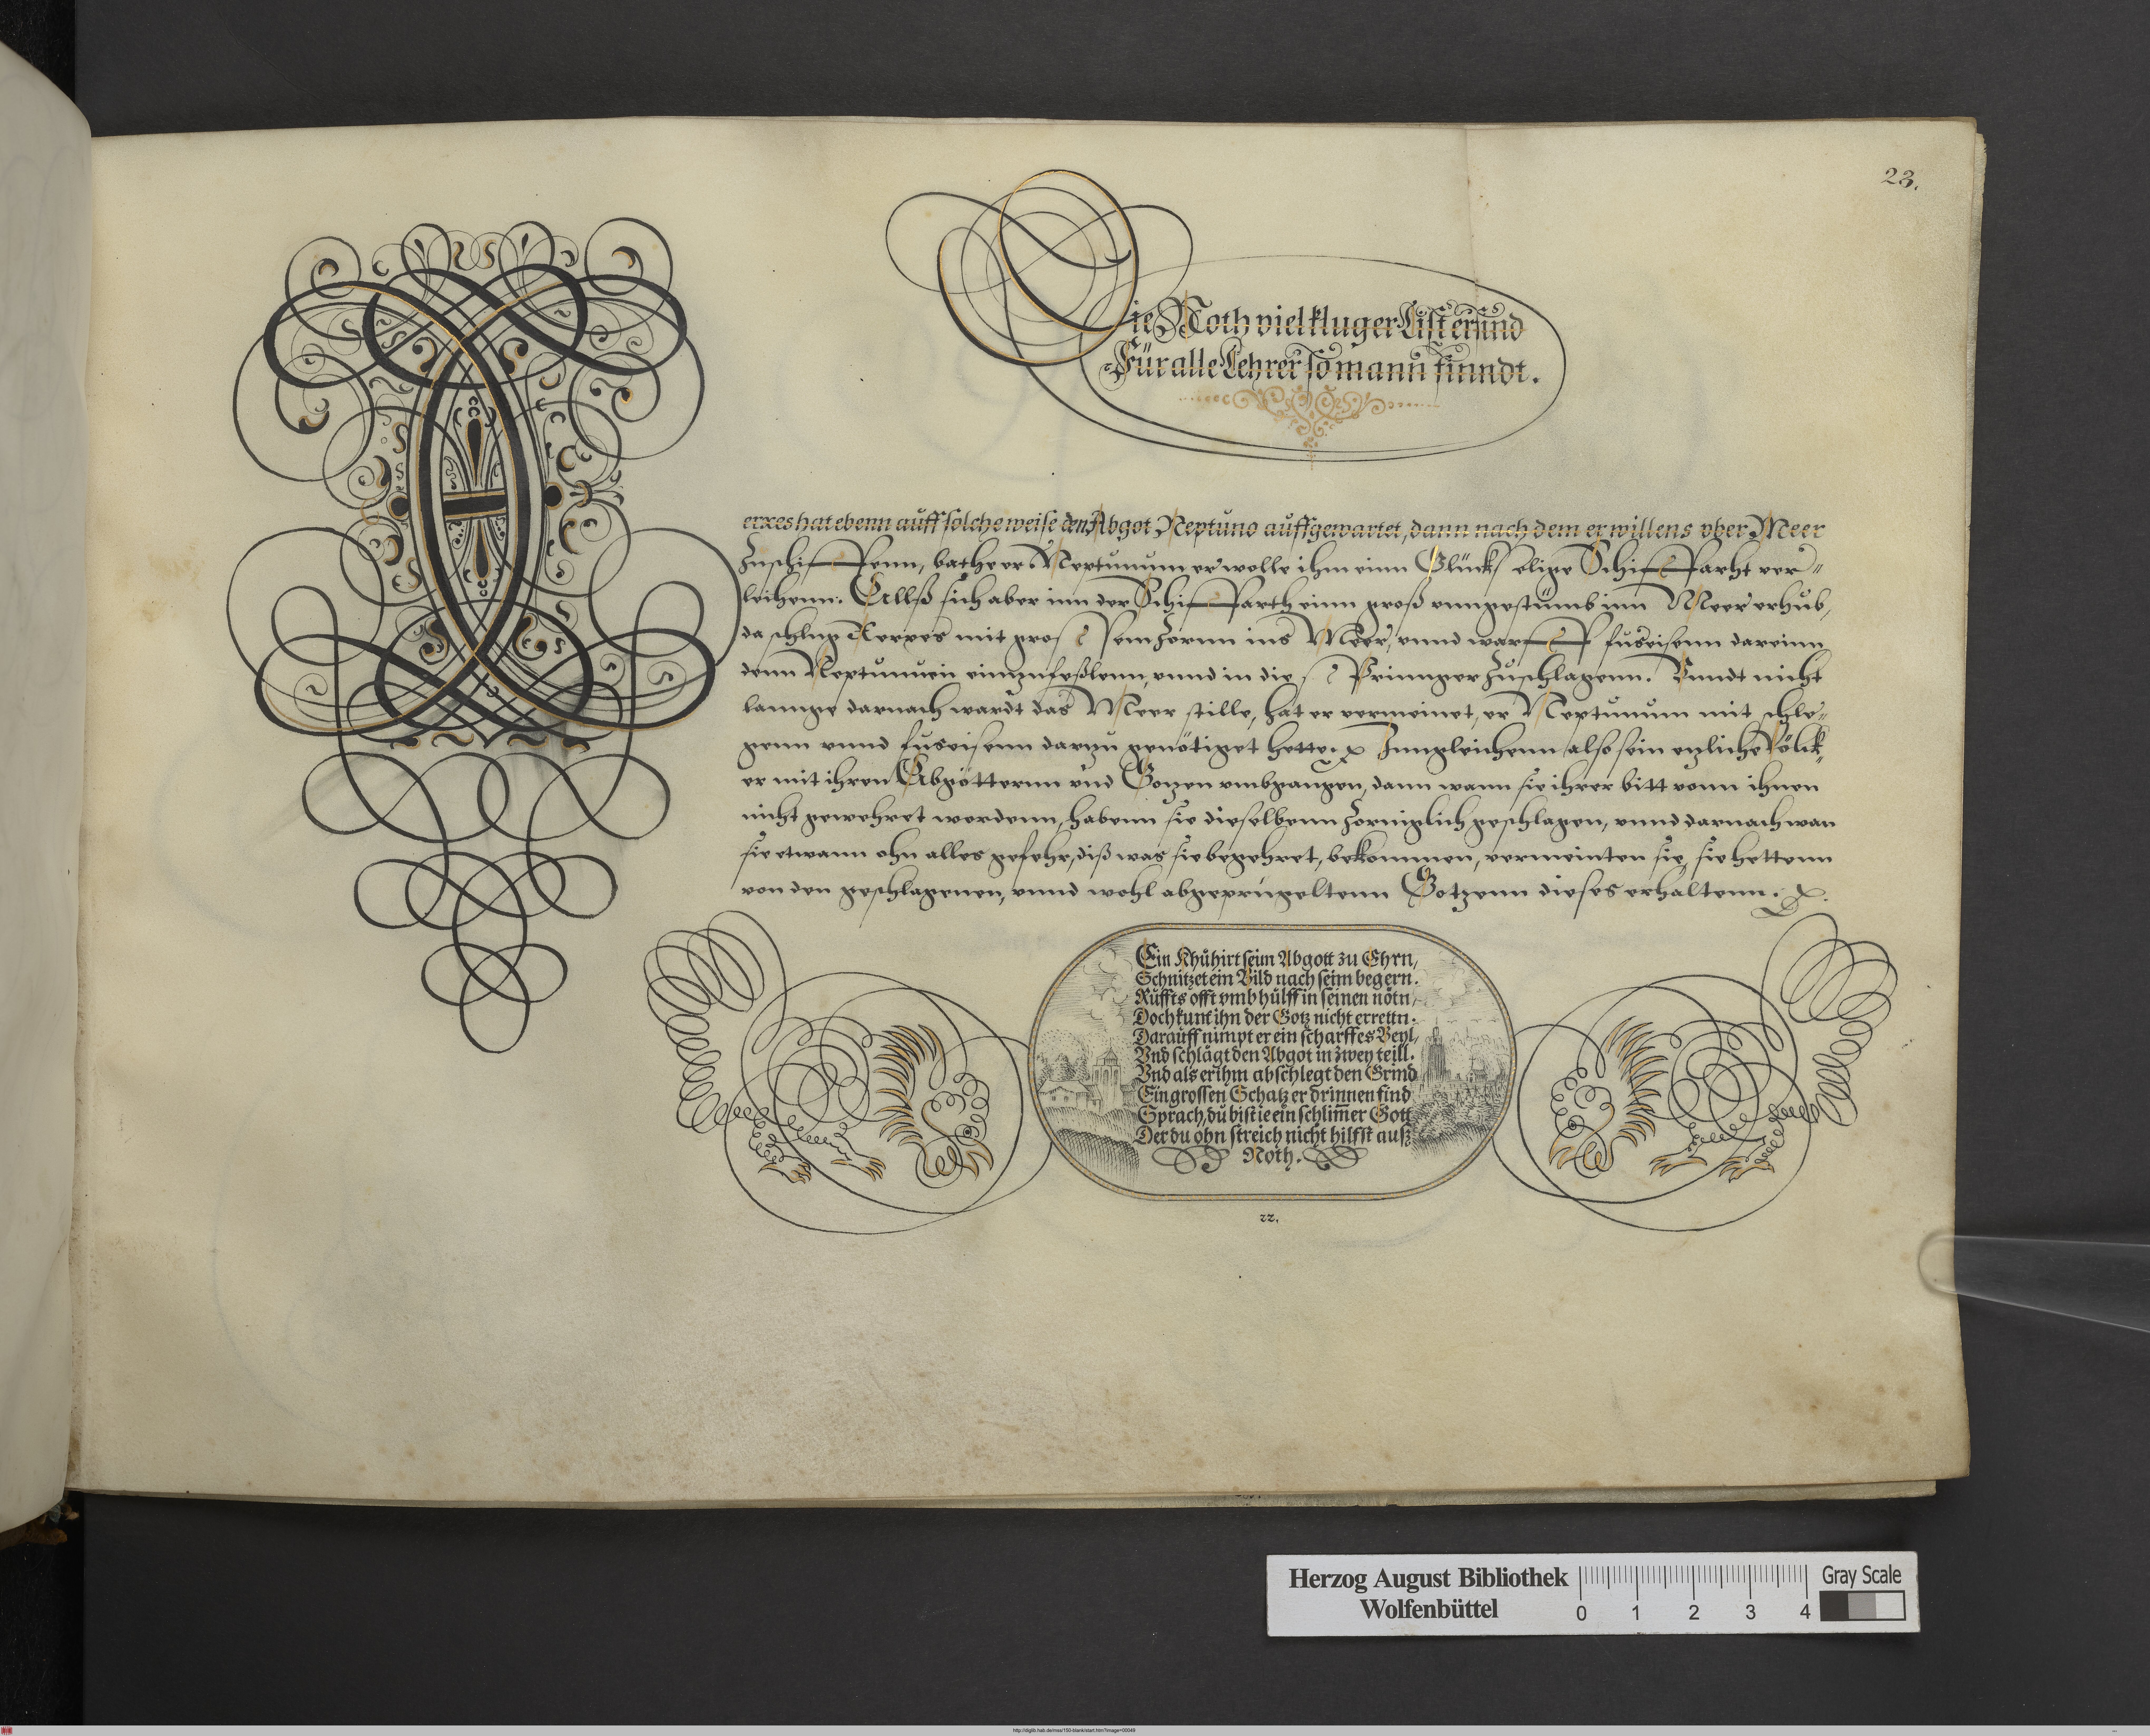 23.
Die Noth viel kluger List ersind
Für alle Lehrer so mann finndt.
Xerxes hat ebenn auff solche weise den Abgot Neptuno auffgewartet, dann nach dem er willens vber Meer
Zuschiffenn, bathe er Neptunum er wolle ihm einn Glückselige Schiffarht ver-
leihenn. Allß sich aber inn der Schiffarth einn groß vnngestümb inn Meer erhub,
da schlug Xerxes mit grossem Zornn ins Meer, vnnd warff fuseisenn dareinn
denn Neptunum einnzufeßlenn, vnnd in die Zuschlagenn. Vnndt nicht
lannge darnach wardt das Meer stille, hat er vermeinet, er Neptunum mit schle-
genn vnnd fuseisenn darzu genötiget hette. Inngleichenn also sein etzliche Völck-
er mit ihren Abgötternn vnd Gotzen vmbgangen, dann wann sie ihrer bitt vonn ihnen
nicht gewehret wordenn, habenn sie dieselbenn Zorniglich geschlagen, vnnd darnach wan
sie etwann ohn alles gefehr, diß was sie begehret, bekommen, vermeinten sie, sie hettenn
von den geschlagenen, vnnd wohl abgeprügeltenn Gotzenn dieses erhaltenn.
Ein Khühirt seim Abgott zu Ehrn,
Schnitzet ein Bild nach seim begern.
Rüffts offt vmb hülff in seinen nötn,
Doch kunt ihn der Gotz nicht errettn.
Darauff nimpt er ein scharffes Beyl,
Vnd schlägt den Abgot in zwey teill.
Vnd als er ihm abschlegt den Grind
Ein grossen Schatz er drinnen find
Sprach, du bist ie ein schlim̄er Gott
Der du ohn streich nicht hilfst auß
Noth.
22.
Herzog August Bibliothek
Wolfenbüttel
0 1 2 3 4
Gray Scale
http://diglib.hab.de/mss/150-blank/start.htm?image=00049